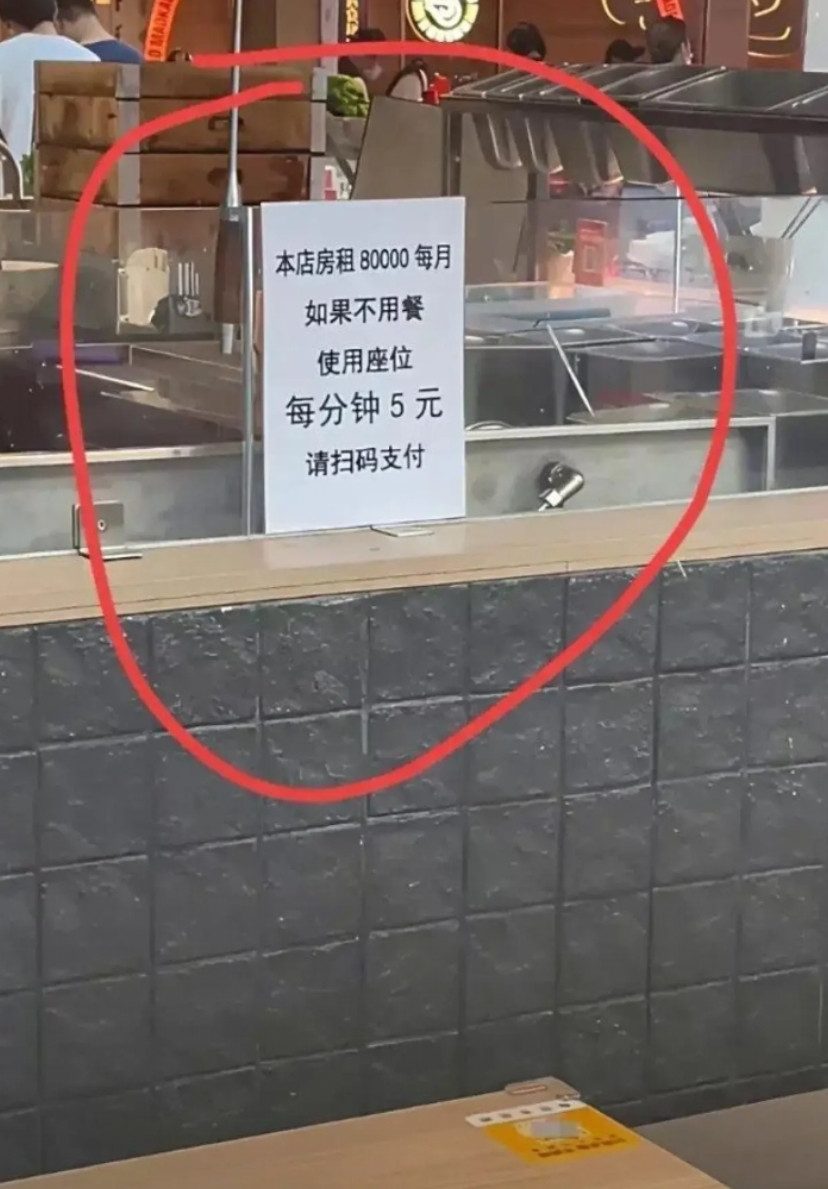 本店房租 80000 每月
如果不用餐
使用座位
每分钟 5 元
请扫码支付